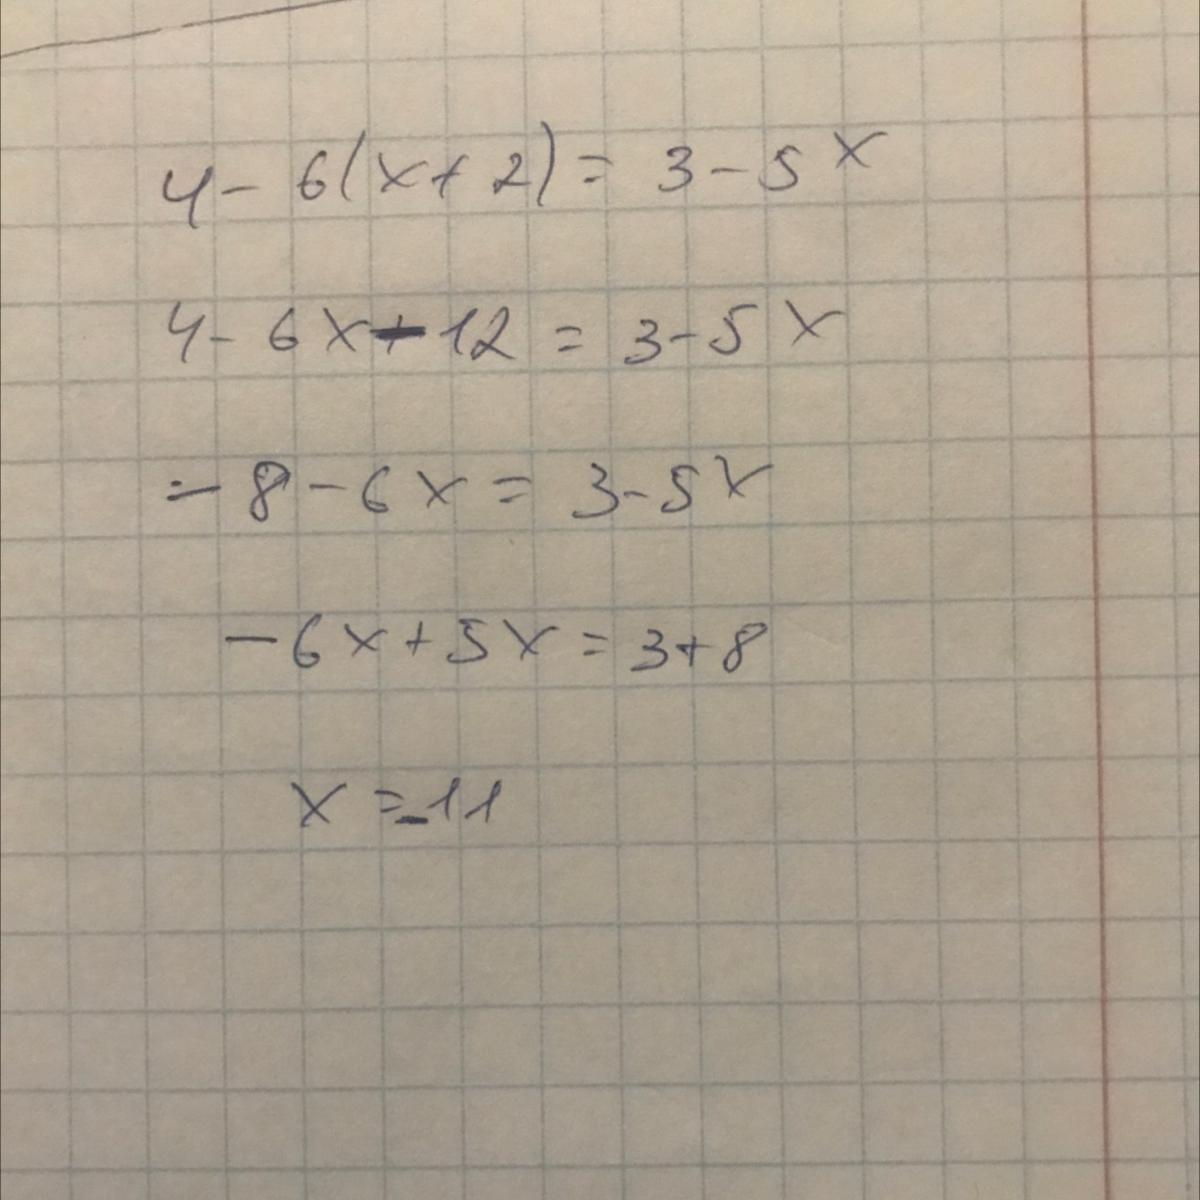 4 - 6(x + 2) = 3 - 5x
4 - 6x - 12 = 3 - 5x
- 8 - 6x = 3 - 5x
- 6x + 5x = 3 + 8
x = -11